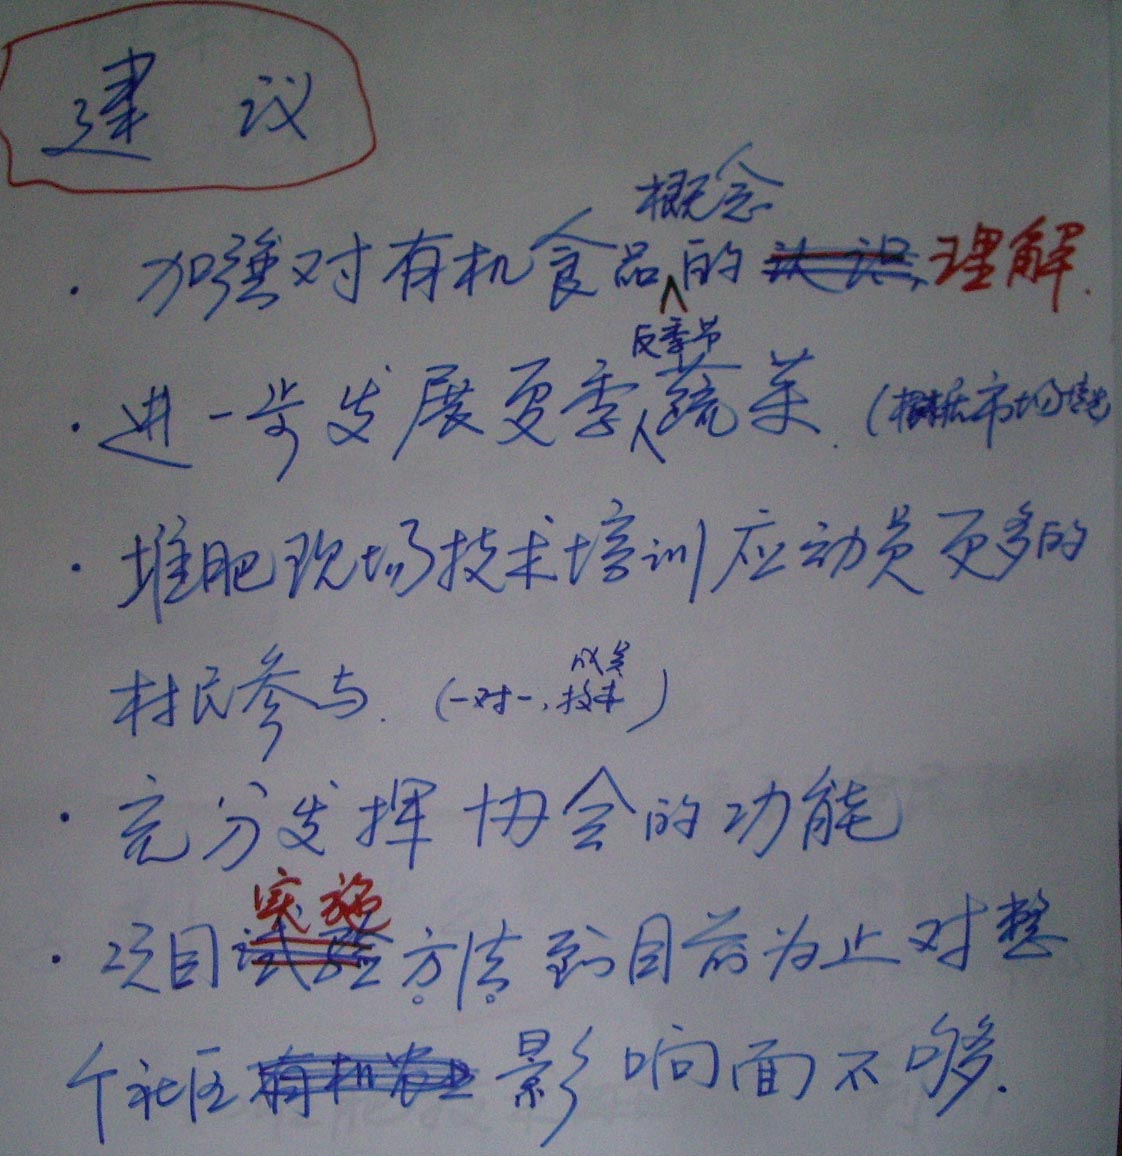 建议
·加强对有机食品概念的认识理解.
·进一步发展夏季反季节蔬菜.(根据市场情况
·堆肥现场技术培训应动员更多的
村民参与.(一对一,技术)
·充分发挥协会的功能
·项目试验实施方法到目前为止对整
个社区有机农业影响面不够.